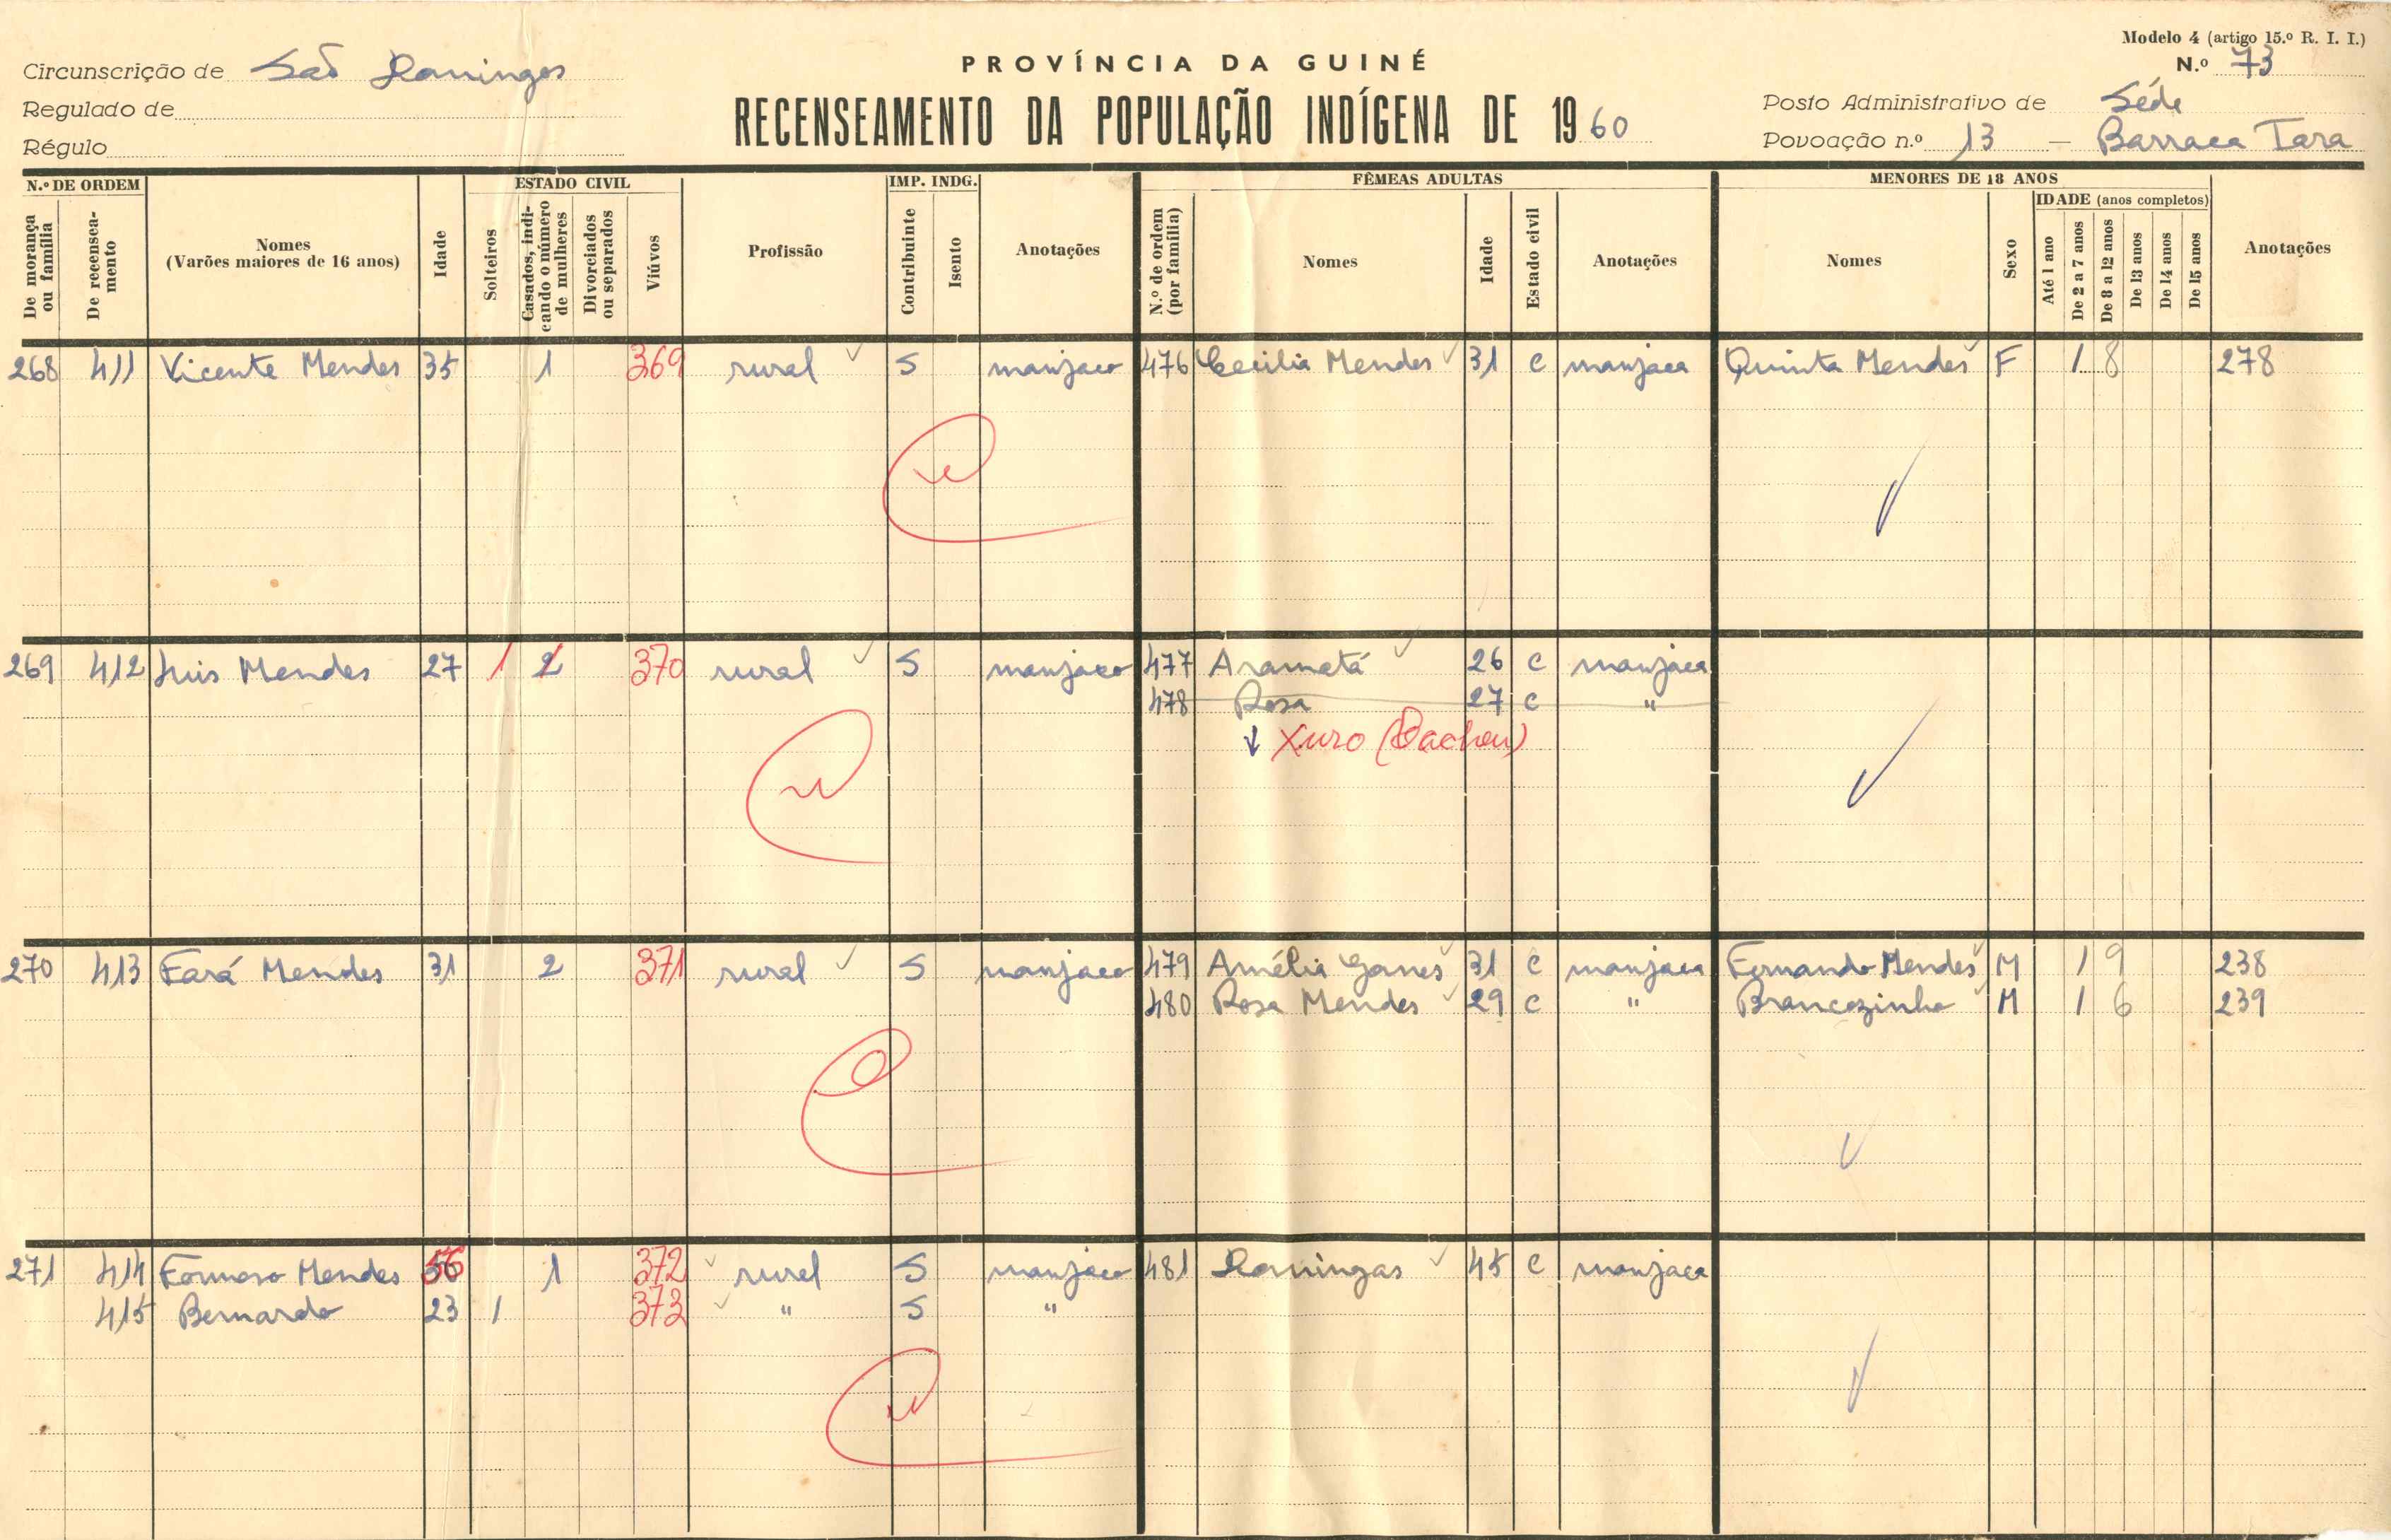 Modelo 4 (artigo 15.º R. I. I.)
N.º 73
PROVÍNCIA DA GUINÉ
RECENSEAMENTO DA POPULAÇÃO INDÍGENA DE 1960
Circunscrição de São Domingos
Regulado de
Régulo
Posto Administrativo de Séde
Povoação n.º 13 — Barraca Tara
N.º DE ORDEM
De morança ou família
De recenseamento
Nomes
(Varões maiores de 16 anos)
Idade
ESTADO CIVIL
Solteiros
Casados, indicando o número de mulheres
Divorciados ou separados
Viúvos
Profissão
IMP. INDG.
Contribuinte
Isento
Anotações
FÊMEAS ADULTAS
N.º de ordem (por família)
Nomes
Idade
Estado civil
Anotações
MENORES DE 18 ANOS
Nomes
Sexo
IDADE (anos completos)
Até 1 ano
De 2 a 7 anos
De 8 a 12 anos
De 13 anos
De 14 anos
De 15 anos
Anotações
268 411 Vicente Mendes 35 1 369 rural S manjaco 476 Cecilia Mendes 31 c manjaca Quinta Mendes F 1 8 278
269 412 Luis Mendes 27 1 2 370 rural S manjaco 477 Arametá 26 c manjaca
478 Rosa 27 c "
Xuro (Cacheu)
270 413 Fará Mendes 31 2 371 rural S manjaco 479 Amélia Gomes 31 c manjaca Fernando Mendes M 1 9 238
480 Rosa Mendes 29 c " Brancozinho M 1 6 239
271 414 Formoso Mendes 56 1 372 rural S manjaco 481 Domingas 45 c manjaca
415 Bernardo 23 1 373 " S "